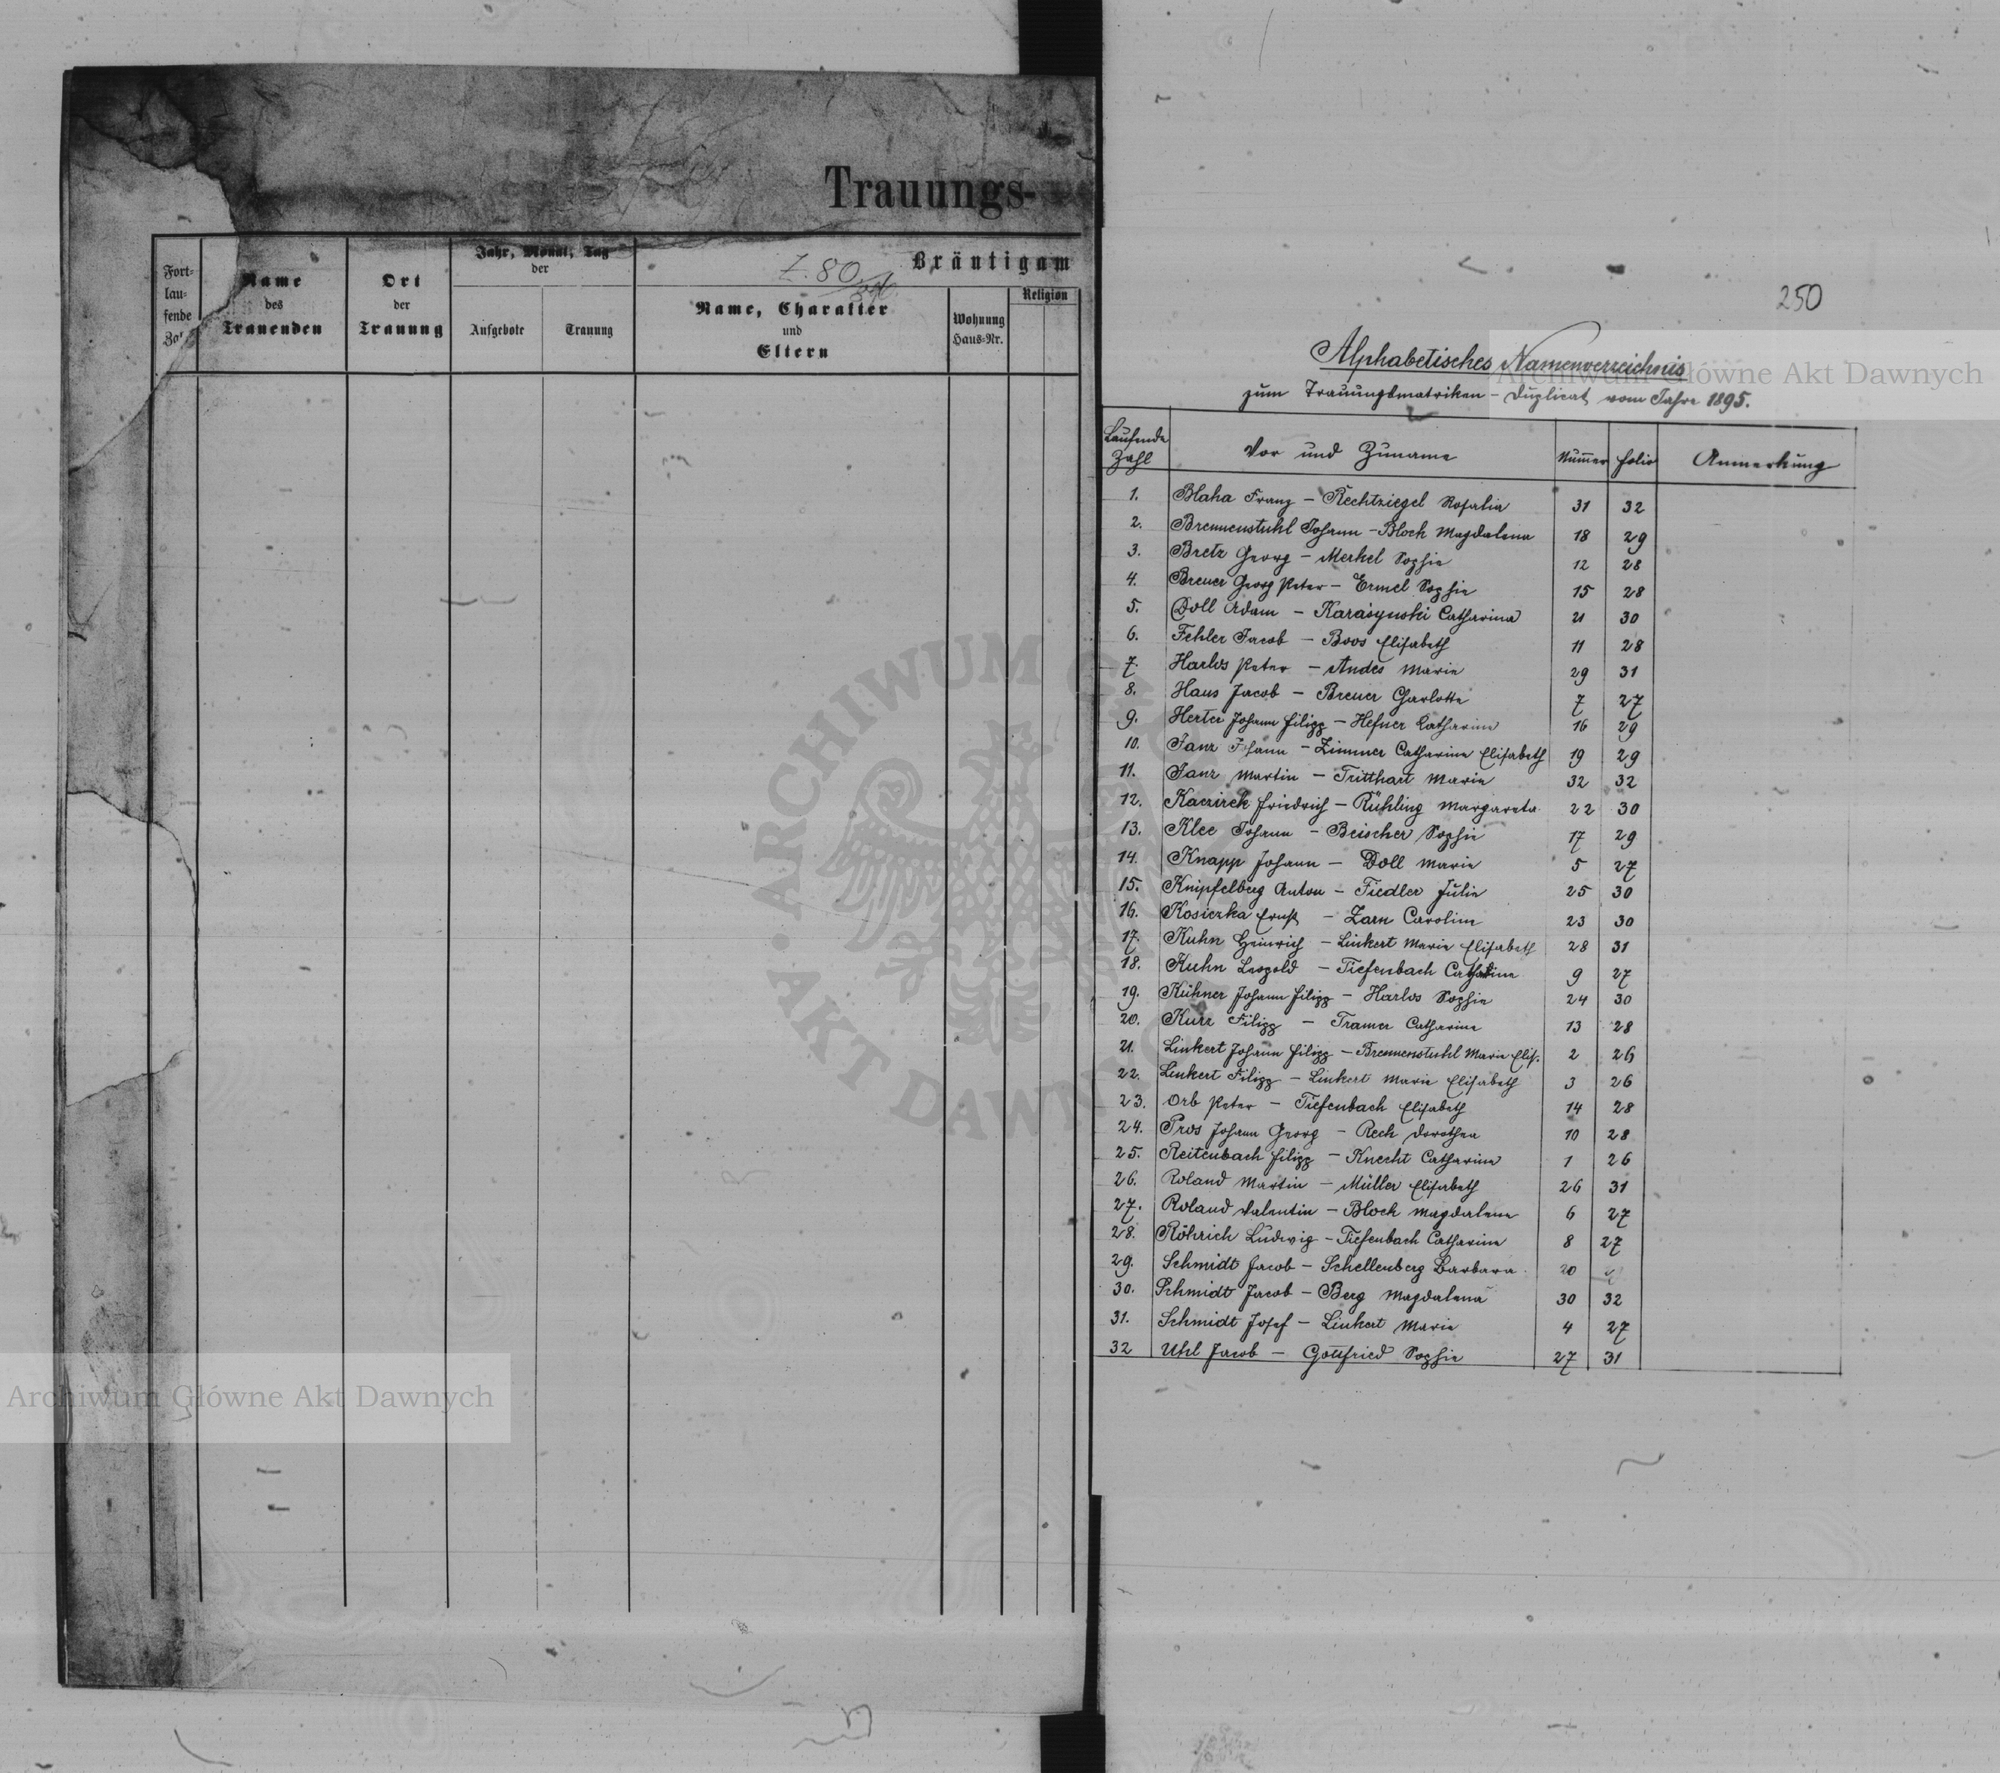 Trauungs-
Fort-
lau-
fende
Name
des
Trauenden
Ort
der
Trauung
Jahr, Monat, Tag
der
Aufgebote
Trauung
Bräutigam
Z. 80
Name, Charakter
und
Eltern
Wohnung
Haus-Nr.
Religion
250
Alphabetisches Namenverzeichnis
zum Trauungsmatriken - Duplicat vom Jahre 1895.
Laufende Zahl Vor und Zuname Nummer Folio Anmerkung
1. Blaha Franz - Rechtziegel Rosalia 31 32
2. Brennenstuhl Johann - Bloch Magdalena 18 29
3. Bretz Georg - Merkel Sophie 12 28
4. Breuer Georg Peter - Ermel Sophie 15 28
5. Doll Adam - Karasynski Catharina 21 30
6. Fehler Jacob - Boos Elisabeth 11 28
7. Harlos Peter - Andes Marie 29 31
8. Haus Jacob - Breuer Charlotte 7 27
9. Herter Johann Filipp - Hefner Catharina 16 29
10. Janz Johann - Zimmer Catharine Elisabeth 19 29
11. Janz Martin - Tritthart Marie 32 32
12. Kaczirek Friedrich - Rühling Margareta 22 30
13. Klee Johann - Beischer Sophie 17 29
14. Knapp Johann - Doll Marie 5 27
15. Knipfelberg Anton - Fiedler Julie 25 30
16. Kosiczka Ernst - Zarn Caroline 23 30
17. Kuhn Heinrich - Linkert Marie Elisabeth 28 31
18. Kuhn Leopold - Tiefenbach Catharina 9 27
19. Kühner Johann Filipp - Harlos Sophie 24 30
20. Kurz Filipp - Tramer Catharine 13 28
21. Linkert Johann Filipp - Brennenstuhl Marie Elis. 2 26
22. Linkert Filipp - Linkert Marie Elisabeth 3 26
23. Orb Peter - Tiefenbach Elisabeth 14 28
24. Pros Johann Georg - Rech Dorothea 10 28
25. Reitenbach Filipp - Knecht Catharina 1 26
26. Roland Martin - Müller Elisabeth 26 31
27. Roland Valentin - Bloch Magdalena 6 27
28. Röhrich Ludwig - Tiefenbach Catharine 8 27
29. Schmidt Jacob - Schellenberg Barbara 20
30. Schmidt Jacob - Berg Magdalena 30 32
31. Schmidt Josef - Linkert Marie 4 27
32 Uhl Jacob - Gottfried Sophie 27 31
Archiwum Główne Akt Dawnych
Archiwum Główne Akt Dawnych